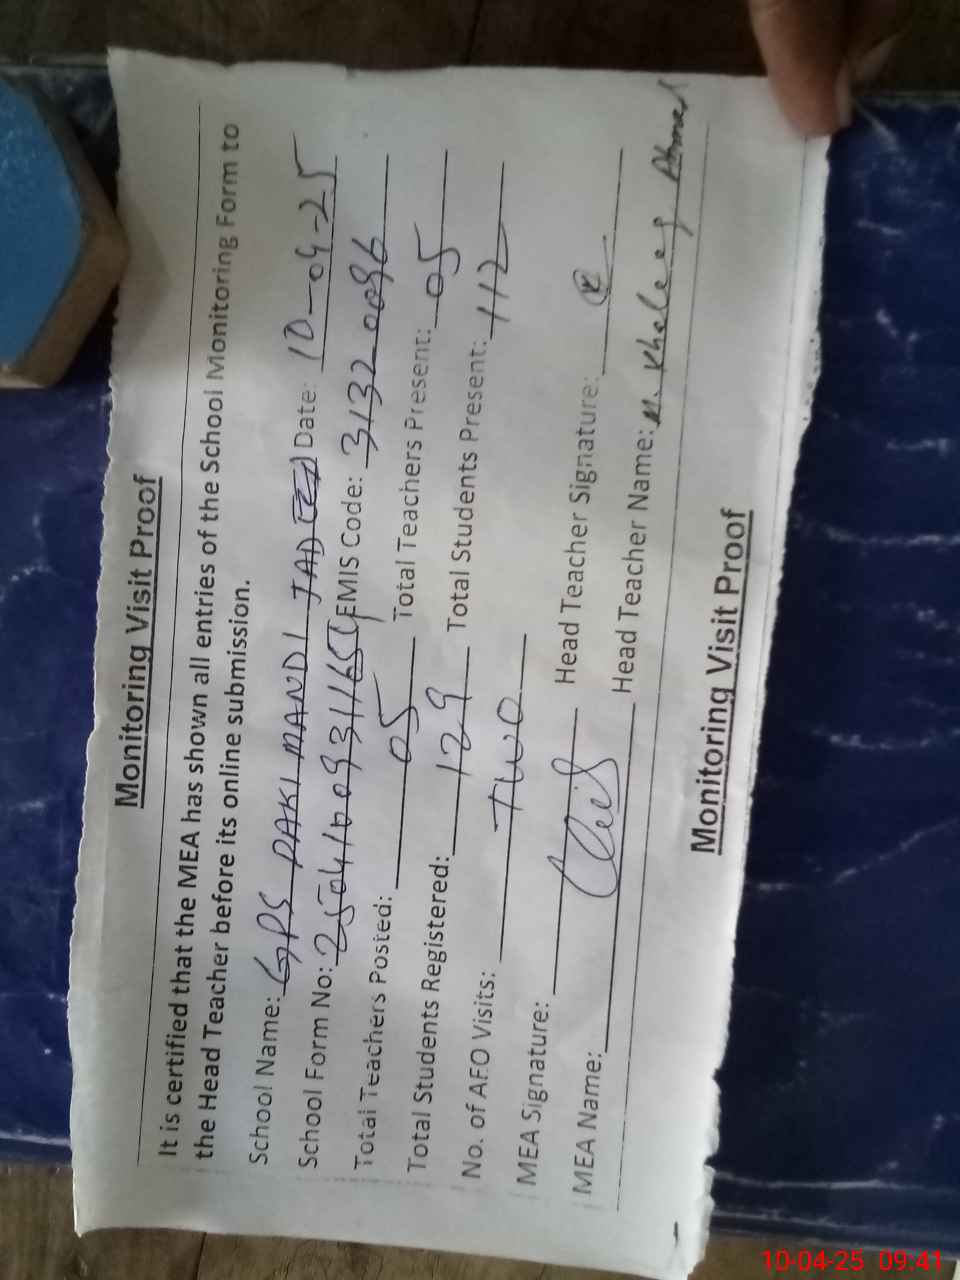 Monitoring Visit Proof
It is certified that the MEA has shown all entries of the School Monitoring Form to
the Head Teacher before its online submission.
School Name: GPS PAKI MANDI JADEED Date: 10-04-25
School Form No: EMIS Code: 31320096
Total Teachers Posted: 05 Total Teachers Present: 05
Total Students Registered: 129 Total Students Present: 112
No. of AEO Visits: TWO
MEA Signature: Head Teacher Signature:
MEA Name: Head Teacher Name: M. Khaleeq Ahmed
Monitoring Visit Proof
10-04-25 09:41